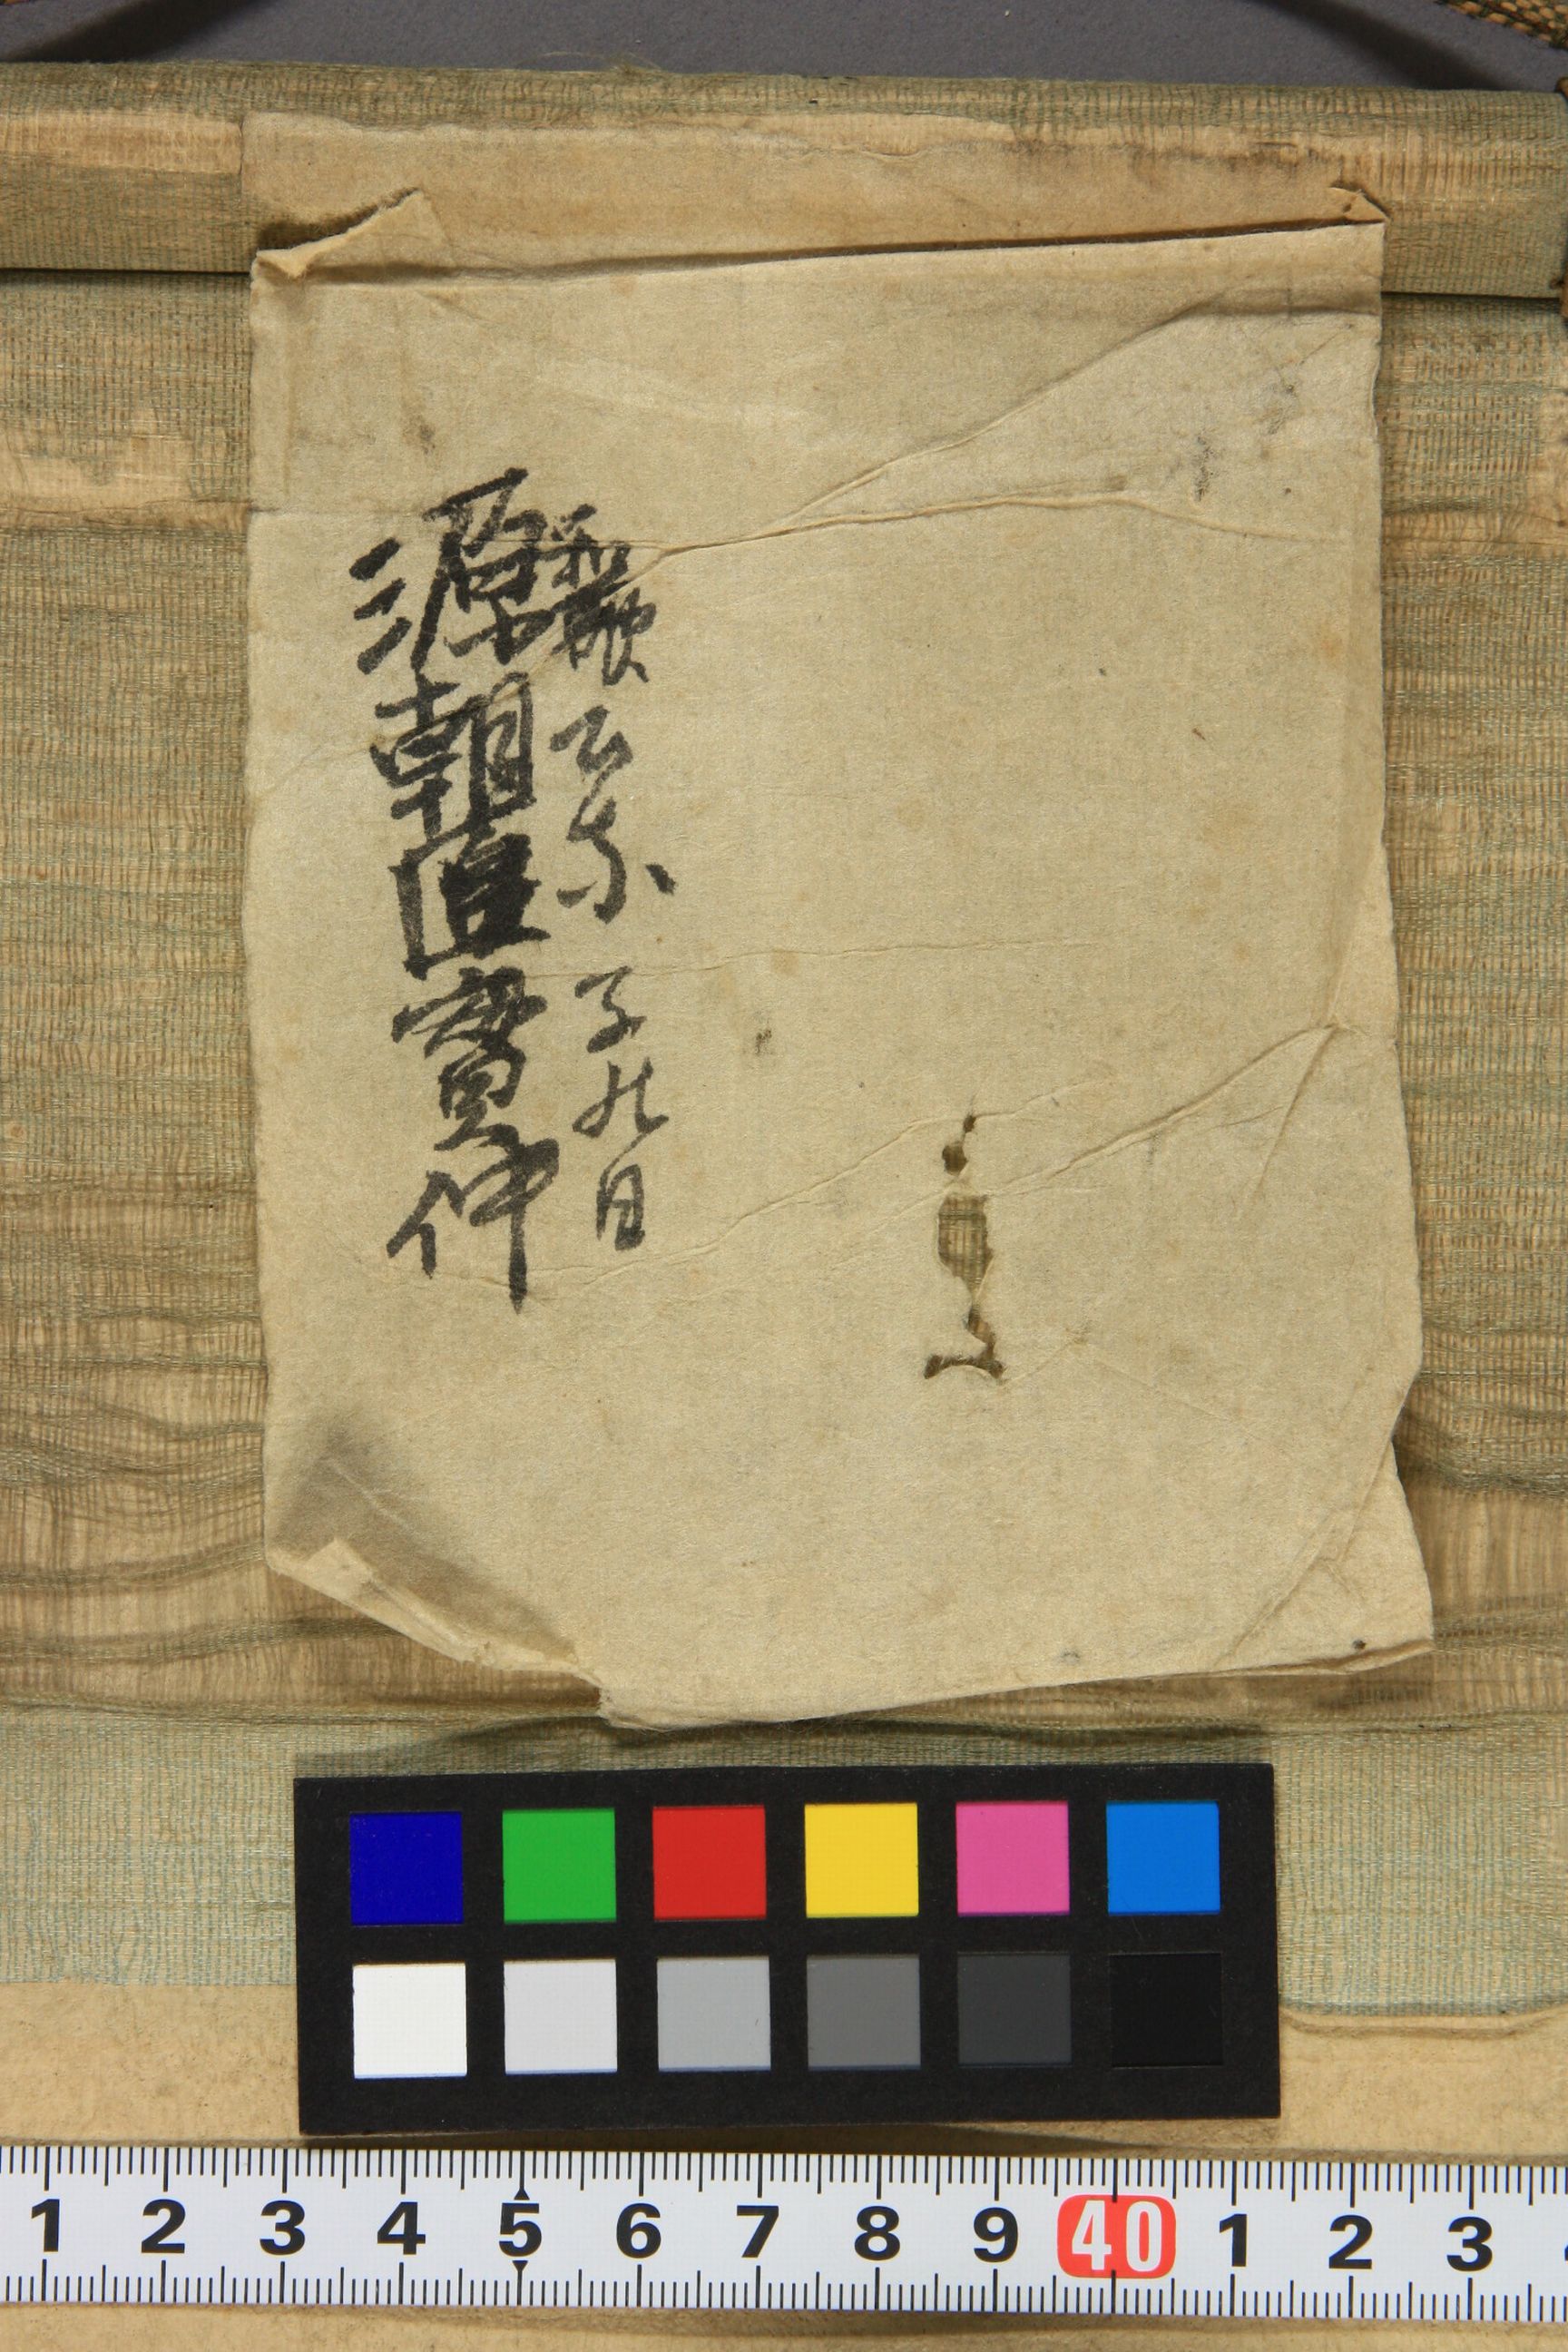 和歌 子 日
源朝臣實仲
1 2 3 4 5 6 7 8 9 40 1 2 3